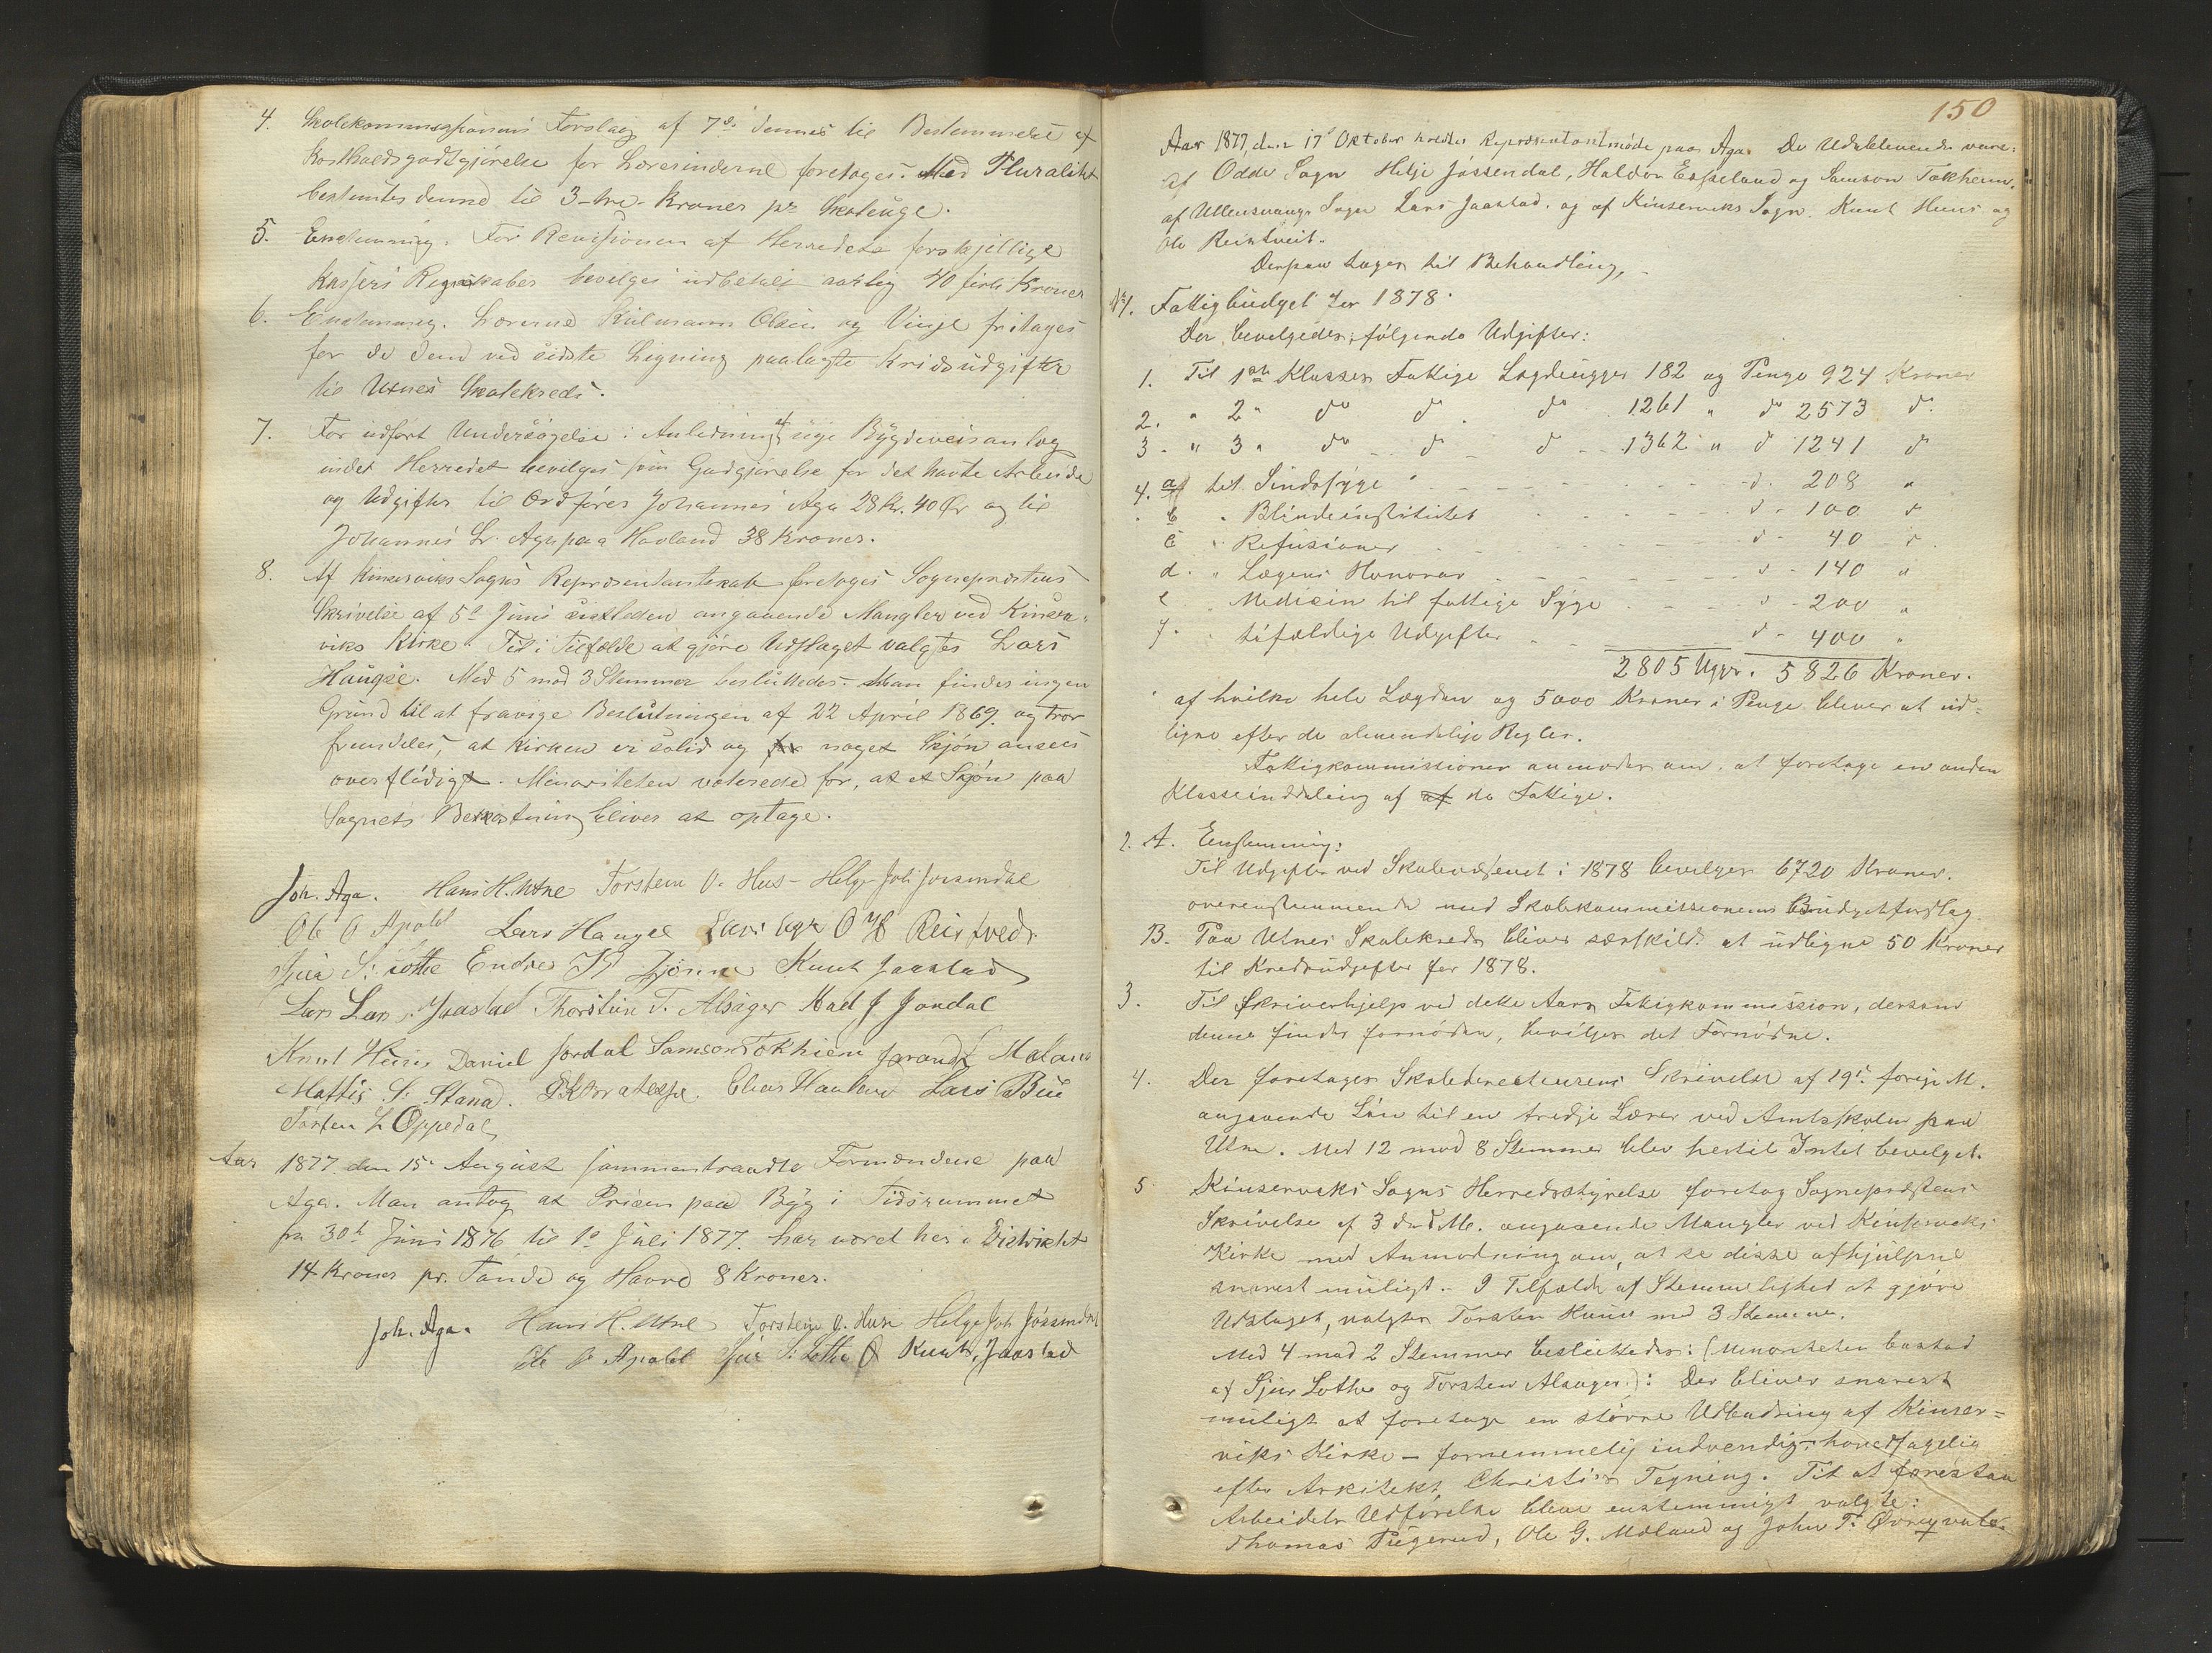 4. Skolekommissionens Forslag af 7de dennes til Bestemmelse af
Kostholdsgodtgjørelse for Lærerinderne foretoges. Med Pluralitet
bestemtes denne til 3-tre-Kroner pr Skoleuge.
5. Enstemmig. For Revisionen af Herredets forskjellige
Kassers Regnskaber bevilges udbetalt aarlig 40 firti Kroner
6. Enstemmig. Lærerne Kulmann Olsen og Vinje fritages
for de dem ved sidste Ligning paalagte Kridsudgifter
til Utnes Skolekreds.
7. For udført Undersøgelse i Anledning af nye Bygdeveisanlæg
indet Herredet bevilges som Godgjørelse for det havte Arbeide
og Udgifter til Ordfører Johannes Aga 28 Kr. 40 Ør og til
Johannes L. Aga paa Hovland 38 Kroner.
8. Af Kinserviks Sogns Repræsentantskab foretoges Sogneprestens
Skrivelse af 5te Juni sistleden angaaende Mangler ved Kinser-
viks Kirke. Til i Tilfælde at gjøre Udslaget valgtes Lars
Haugse. Med 5 mod 3 Stemmer besluttedes: Man finder ingen
Grund til at fravige Beslutningen af 22 April 1869. og tror
fremdeles, at Kirken er solid og noget Skjøn ansees
overflødigt. Minoriteten voterede for, at et Skjøn paa
Sognets Bekostning bliver at optage.
Joh. Aga. Hans H. Utne Torstein O. Hus - Helge Joh Jøsendal
Ole O Apold Lars Haugse Reisetvedt
Sjur S: Lothe Endre Knut Jaastad
Lars Lars s. Jaastad Thorstein T. Alsager Aad J Jondal
Knut Huus Daniel Jordal Samson Tokheim Jorand Måland
Mattis S: Stana. Elias Hauland Lars Bue
Torsten L Oppedal
Aar 1877 den 15de August sammentraadte Formændene paa
Aga. Man antog at Prisen paa Byg i Tidsrummet
fra 30te Juni 1876 til 1ste Juli 1877. har været her i Distriktet
14 Kroner pr. Tønde og Havre 8 Kroner.
Joh. Aga. Hans H. Utne Torstein O. Hus Helge Joh Jøsendal
Ole O Apold Sjur S: Lothe Knut Jaastad
150
Aar 1877, den 17de Oktober holdtes Repræsentantmøde paa Aga. De Udeblevende vare:
af Odde Sogn Helje Jøssendal, Haldor Espeland og Samson Tokheim.
af Ullensvangs Sogn Lars Jaastad. og af Kinserviks Sogn. Knut Huus og
Ole Reistveit.
Derpaa toges til Behandling,
No 1. Fattigbudget for 1878.
Der bevilgedes følgende Udgifter:
1. Til 1ste Klasses Fattige Lægdeuger 182 og Penge 924 Kroner
2. " 2 " do do do 1261 " do 2573 do
3. " 3 " do do do 1362 " do 1241 do
4. a til Sindssyge do 208 "
b " Blindeinstitutet do 100 do
c " Refusioner do 40 do
d. " Lægens Honorar do 140 "
e " Medicin til fattige Syge do 200 "
f. " tilfældige Udgifter do 400 "
2805 Uger. 5826 Kroner.
af hvilke hele Lægden og 5000 Kroner i Penge bliver at ud-
ligne efter de almendelige Regler.
Fattigkommissionen anmodes om at foretage en anden
Klasseinddeling af af de Fattige.
2. A. Eenstemmig:
Til Udgifter ved Skolevæsenet i 1878 bevilges 6720 Kroner.
overenstemmende med Skolekommissionens Budgetforslag.
B. Paa Utnes Skolekreds bliver særskildt at udligne 50 Kroner
til Kredsudgifter for 1878.
3. Til Skriverhjelp ved dette Aars Fattigkommission, dersom
denne findes fornøden, bevilges det Fornødne.
4. Der foretoges Skoledirecteurens Skrivelse af 19de forige M.
angaaende Løn til en tredje Lærer ved Amtsskolen paa
Utne. Med 12 mod 8 Stemmer blev hertil Intet bevilget.
5. Kinserviks Sogns Herredsstyrelse foretog Sogneprestens
Skrivelse af 3 ds M. angaaende Mangler ved Kinserviks
Kirke med Anmodning om, at se disse afhjulpne
snarest muligt. I Tilfælde af Stemmelighed at gjøre
Udslaget, valgtes Torsten Huus med 3 Stemmer.
Med 4 mod 2 Stemmer besluttedes: (Minoriteten bestod
af Sjur Lothe og Torsten Alsager): Der bliver snarest
muligt at foretage en større Udbedring af Kinser-
viks Kirke – fornemmelig indvendig – hovedsagelig
efter Arkitekt Christies Tegning. Til at forestaa
Arbeidets Udførelse bleve enstemmigt valgte:
Thomas Piigerud, Ole G. Måland og John T.